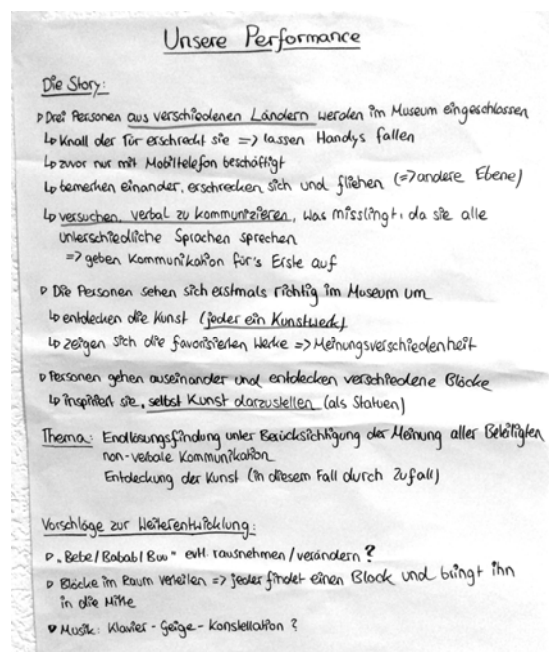 Unsere Performance
Die Story:
▹ Drei Personen aus verschiedenen Ländern werden im Museum eingeschlossen
↳ Knall der Tür erschreckt sie => lassen Handys fallen
↳ zuvor nur mit Mobiltelefon beschäftigt
↳ bemerken einander, erschrecken sich und fliehen (=> andere Ebene)
↳ versuchen, verbal zu kommunizieren, was misslingt, da sie alle
unterschiedliche Sprachen sprechen
=> geben Kommunikation für's Erste auf
▹ Die Personen sehen sich erstmals richtig im Museum um
↳ entdecken die Kunst (jeder ein Kunstwerk)
↳ zeigen sich die favorisierten Werke => Meinungsverschiedenheit
▹ Personen gehen auseinander und entdecken verschiedene Blöcke
↳ inspiriert sie, selbst Kunst darzustellen (als Statuen)
Thema: Endlösungsfindung unter Berücksichtigung der Meinung aller Beteiligten
non-verbale Kommunikation
Entdeckung der Kunst (in diesem Fall durch Zufall)
Vorschläge zur Weiterentwicklung:
▹ „Bebe/Babab/Buu" evtl. rausnehmen/verändern?
▹ Blöcke im Raum verteilen => jeder findet einen Block und bringt ihn
in die Mitte
▹ Musik: Klavier-Geige-Konstellation?